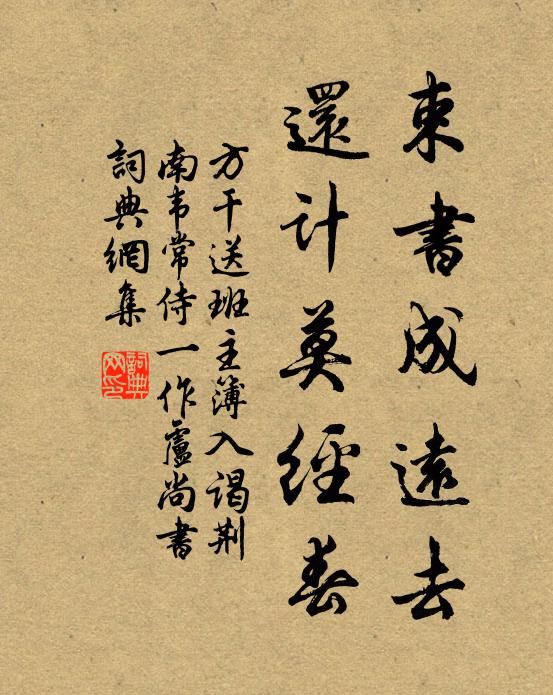 束書成遠去
還計莫經春
方干送班主簿入謁荆
南韦常侍一作盧尚書
詞典網集
詞典網印